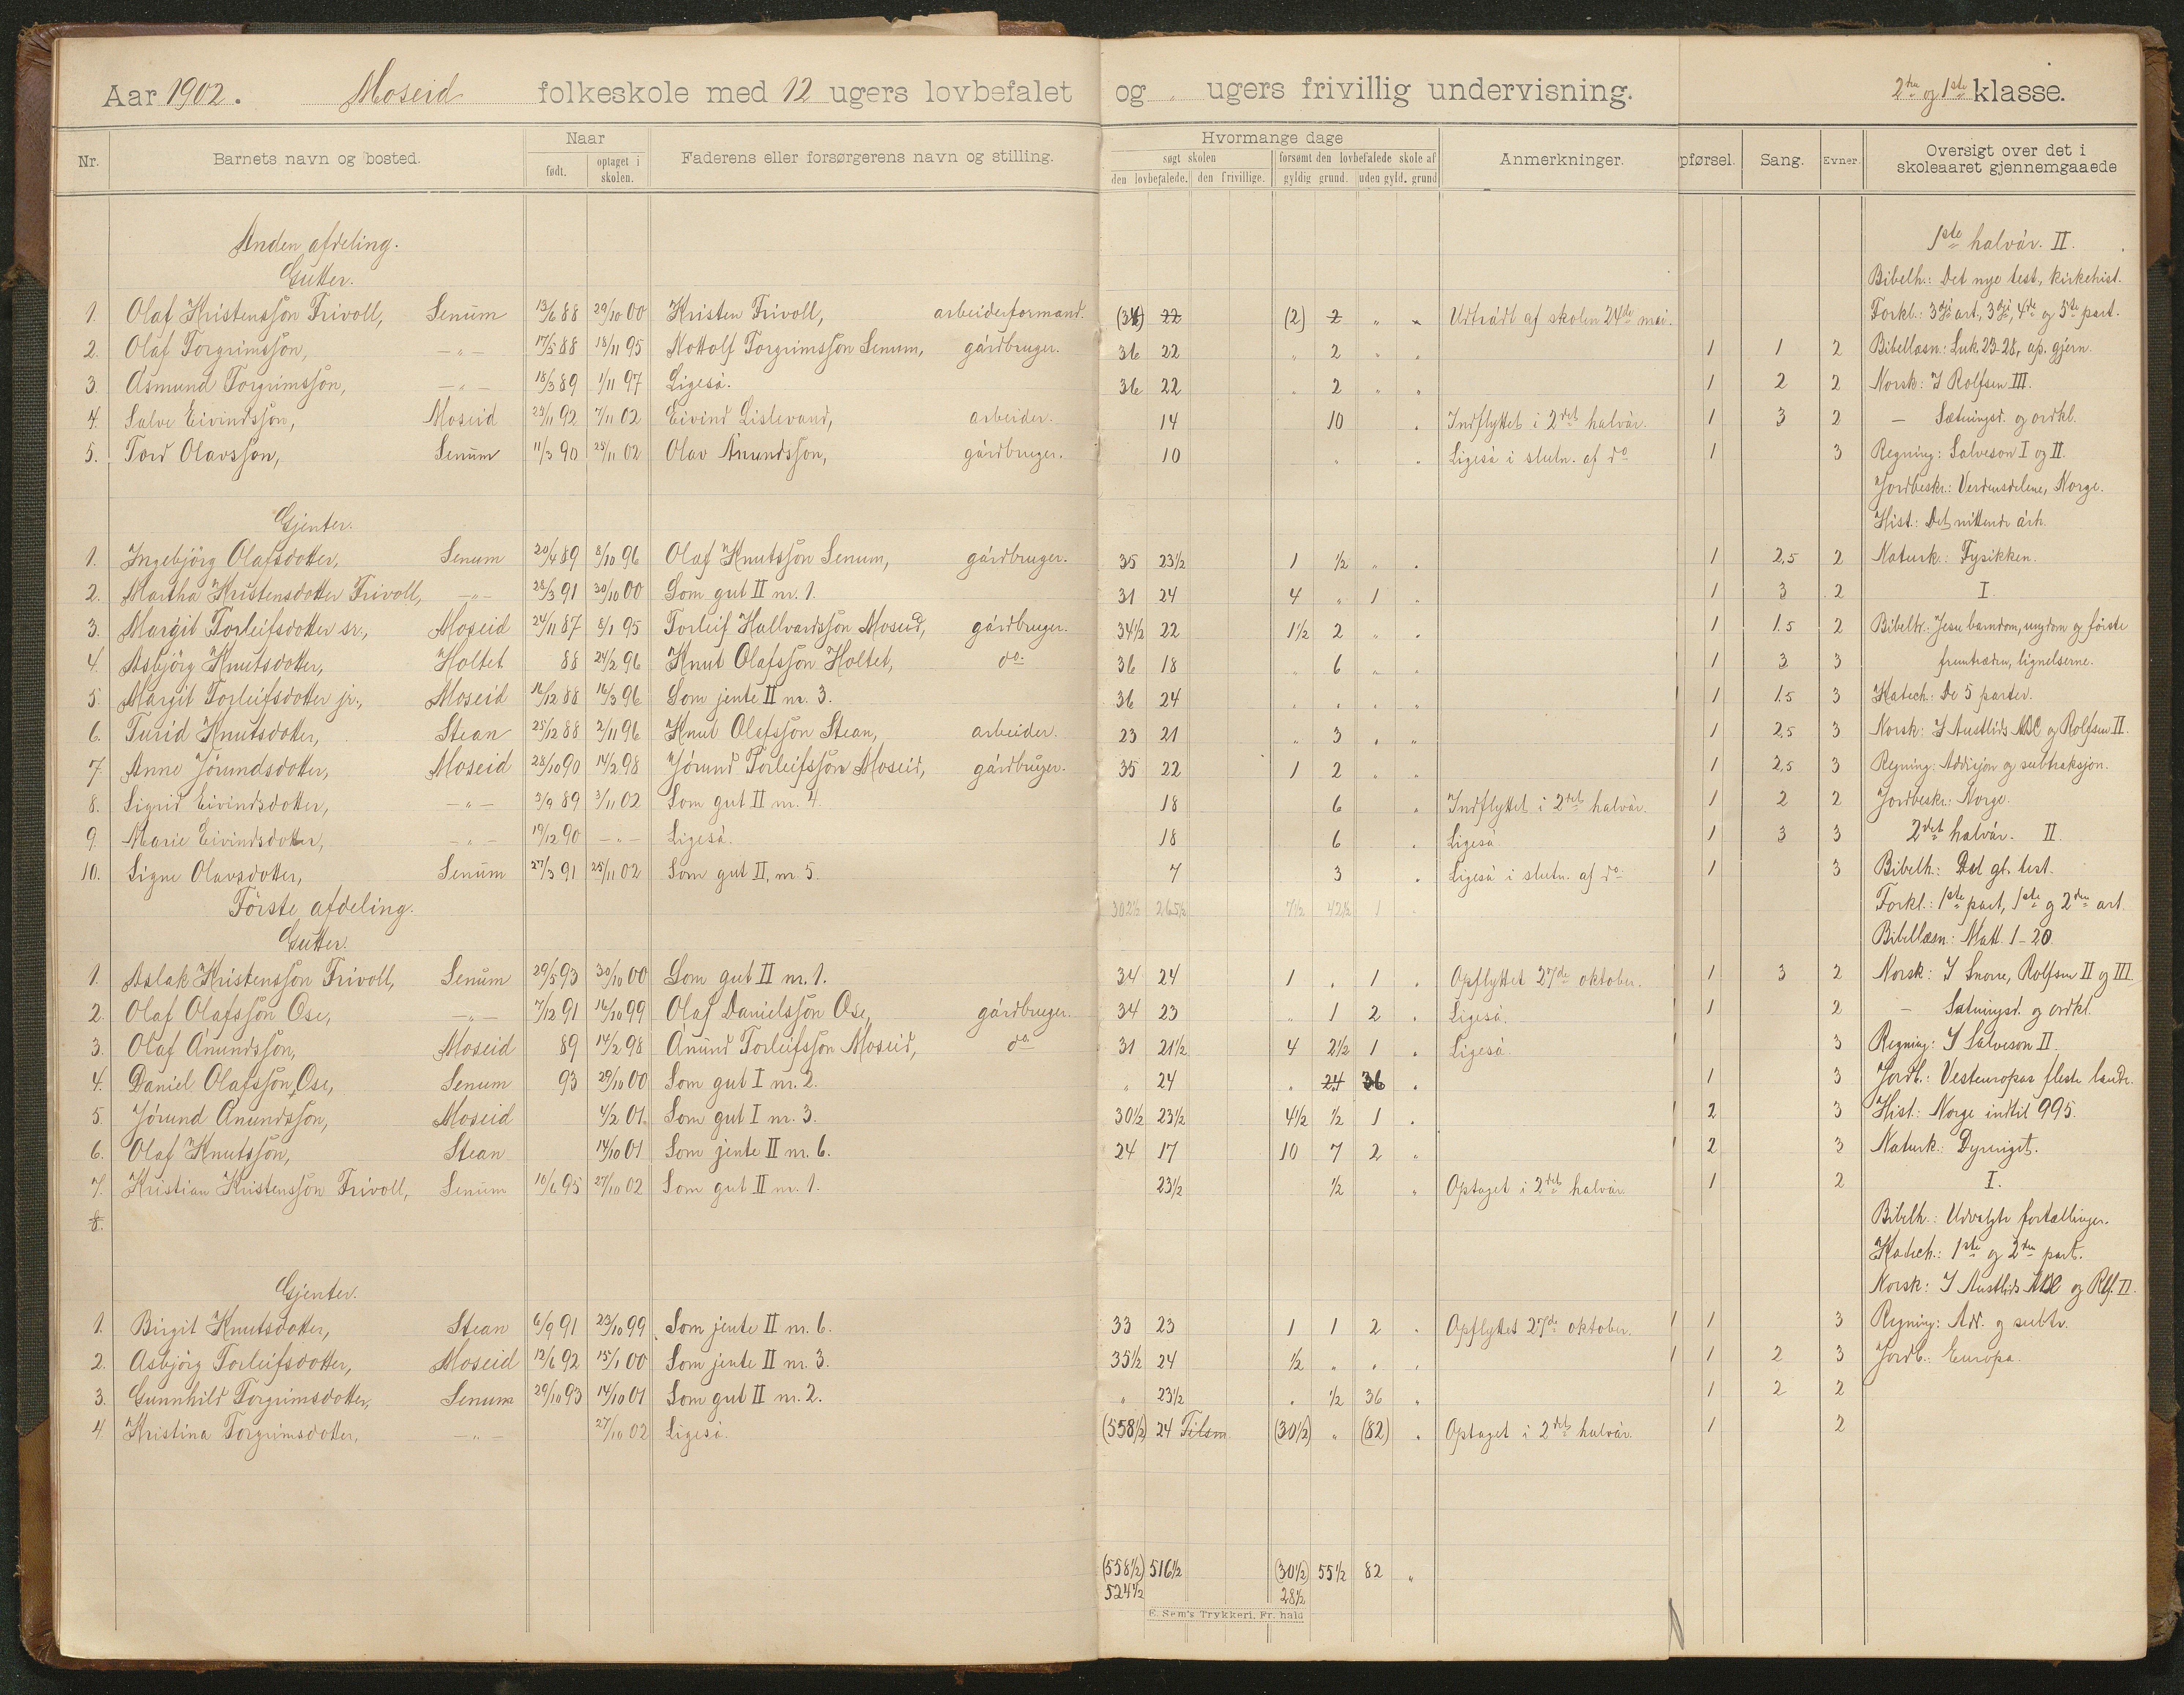 Aar 1902. Moseid folkeskole med 12 ugers lovbefalet og „ ugers frivillig undervisning. 2den og 1ste klasse.
Nr. Barnets navn og bosted. Naar født. optaget i skolen. Faderens eller forsørgerens navn og stilling. Hvormange dage søgt skolen den lovbefalede. den frivillige. forsømt den lovbefalede skole af gyldig grund. uden gyld. grund Anmerkninger. pførsel. Sang. Evner. Oversigt over det i skoleaaret gjennemgaaede
Anden afdeling. 1ste halvår. II.
Gutter. Bibelh.: Det nye test., kirkehist.
1. Olaf Kristensson Trivoll, Senum 13/6 88 29/10 00 Kristen Trivoll, arbeiderformand. (34) 22 (2) 2 „ „ Udtrådt af skolen 24de mai. Forkl.: 3dje art., 3dje, 4de og 5te part.
2. Olaf Torgrimsson, —„— 17/5 88 18/11 95 Nottolf Torgrimsson Senum, gårdbruger. 36 22 „ 2 „ „ 1 1 2 Bibellæsn: Luk. 23-28, ap. gjern.
3. Åsmund Torgrimsson, —„— 18/3 89 1/11 97 Ligeså. 36 22 „ 2 „ „ 1 2 2 Norsk: I Rolfsen III.
4. Salve Eivindsson, Moseid 29/11 92 7/11 02 Eivind Lislevand, arbeider. 14 10 „ Indflyttet i 2det halvår. 1 3 2 — Sætningsd. og ordkl.
5. Tord Olavsson, Senum 11/3 90 25/11 02 Olav Ånundsson, gårdbruger. 10 „ „ Ligeså i slutn. af do 1 3 Regning: Salveson I og II.
Jordbeskr.: Verdensdelene, Norge.
Gjenter. Hist.: Det nittende årh.
1. Ingebjörg Olafsdotter, Senum 20/4 89 8/10 96 Olaf Knutsson Senum, gårdbruger. 35 23½ 1 ½ „ „ 1 2,5 2 Naturk.: Fysikken.
2. Martha Kristensdotter Trivoll, —„— 28/3 91 30/10 00 Som gut II nr. 1. 31 24 4 „ 1 „ 1 3 2 I.
3. Margit Torleifsdotter sr., Moseid 24/11 87 8/1 95 Torleif Hallvardsson Moseid, gårdbruger. 34½ 22 1½ 2 „ „ 1 1.5 2 Bibelh.: Jesu barndom, ungdom og første
4. Asbjörg Knutsdotter, Holtet 88 24/2 96 Knut Olafsson Holtet, do. 36 18 „ 6 „ „ 1 3 3 fremtræden, lignelserne.
5. Margit Torleifsdotter jr., Moseid 16/12 88 16/3 96 Som jente II nr. 3. 36 24 „ „ „ „ 1 1.5 3 Katech: De 5 parter.
6. Turid Knutsdotter, Stean 25/12 88 2/11 96 Knut Olafsson Stean, arbeider. 23 21 „ 3 „ „ 1 2,5 3 Norsk: I Austlids ABC og Rolfsen II.
7. Anne Jörundsdotter, Moseid 28/10 90 14/2 98 Jörund Torleifsson Moseid, gårdbruger. 35 22 1 2 „ „ 1 2,5 3 Regning: Addisjon og subtraksjon.
8. Sigrid Eivindsdotter, —„— 3/9 89 3/11 02 Som gut II nr. 4. 18 6 „ Indflyttet i 2det halvår. 1 2 2 Jordbeskr.: Norge.
9. Marie Eivindsdotter, —„— 19/12 90 —„— Ligeså. 18 6 „ Ligeså. 1 3 3 2det halvår. II.
10. Signe Olavsdotter, Senum 27/3 91 25/11 02 Som gut II, nr 5. 7 3 „ Ligeså i slutn. af do. 1 3 Bibelh.: Det gl. test.
Förste afdeling. 302½ 265½ 7½ 42½ 1 Forkl.: 1ste part, 1ste og 2den art.
Gutter. Bibellæsn: Matt. 1-20.
1. Aslak Kristensson Trivoll, Senum 29/5 93 30/10 00 Som gut II nr. 1. 34 24 1 „ 1 „ Opflyttet 27de oktober. 1 3 2 Norsk: I Snorre, Rolfsen II og III.
2. Olaf Olafsson Ose, —„— 7/12 91 16/10 99 Olaf Danielsson Ose, gårdbruger. 34 23 „ 1 2 „ Ligeså. 1 2 — Sætningsd. og ordkl.
3. Olaf Ånundsson, Moseid 89 14/2 98 Ånund Torleifsson Moseid, do 31 21½ 4 2½ 1 „ Ligeså. 3 Regning: I Salveson II.
4. Daniel Olafsson Ose, Senum 93 29/10 00 Som gut I nr. 2. „ 24 „ 24 36 „ 1 3 Jordb.: Vesteuropas fleste lande.
5. Jörund Ånundsson, Moseid 4/2 01. Som gut I nr. 3. 30½ 23½ 4½ ½ 1 „ 2 3 Hist.: Norge indtil 995.
6. Olaf Knutsson, Stean 14/10 01 Som jente II nr. 6. 24 17 10 7 2 „ 2 3 Naturk.: Dyreriget.
7. Kristian Kristensson Trivoll, Senum 10/6 95 27/10 02 Som gut II nr. 1. 23½ ½ „ Optaget i 2det halvår. 1 2 I.
8. Bibelh.: Udvalgte fortællinger.
Katech.: 1ste og 2den part.
Gjenter. Norsk: I Austlids ABC og Rlf. II.
1. Birgit Knutsdotter, Stean 6/9 91 23/10 99 Som jente II nr. 6. 33 23 1 1 2 „ Opflyttet 27de oktober. 1 3 Regning: Add. og subtr.
2. Asbjörg Torleifsdotter, Moseid 12/6 92 15/1 00 Som jente II nr. 3. 35½ 24 ½ „ „ „ 1 2 3 Jordb.: Europa.
3. Gunnhild Torgrimsdotter, Senum 29/10 93 14/10 01 Som gut II nr. 2. „ 23½ „ ½ 36 „ 1 2 2
4. Kristina Torgrimsdotter, —„— 27/10 02 Ligeså. (558½) 24 Tilsm (30½) „ (82) „ Optaget i 2det halvår. 1 2
(558½) 516½ (30½) 55½ 82 „
524½ 28½
E. Sem's Trykkeri, Fr. hald